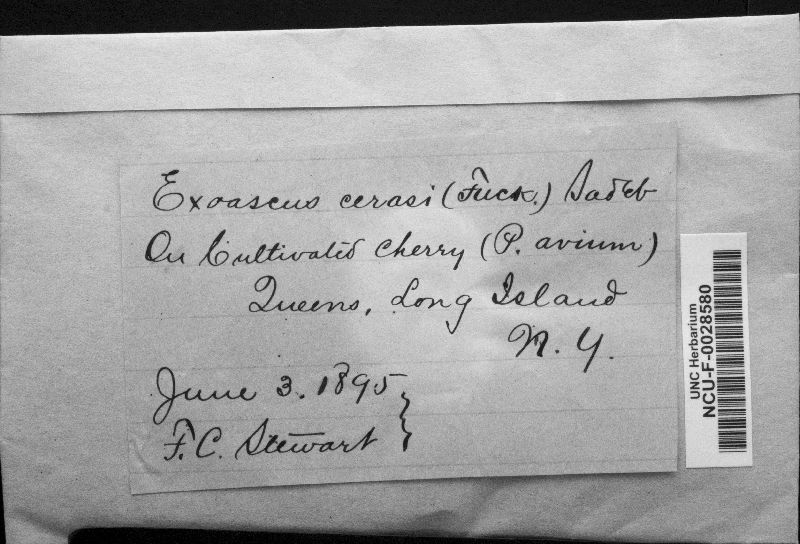 Exoascus cerasi (Fuck.) Sadeb
On Cultivated cherry (P. avium)
Queens, Long Island
N. Y.
June 3. 1895
F. C. Stewart
UNC Herbarium
NCU-F-0028580